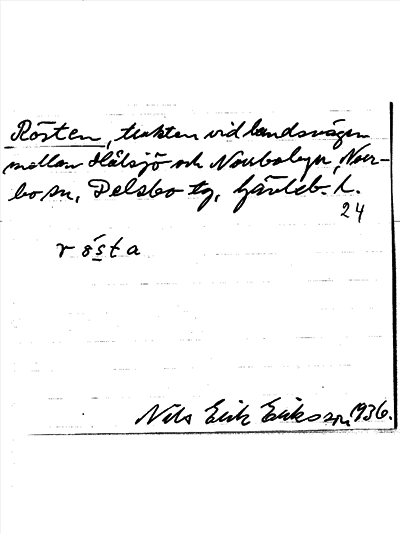 Rösten, trakten vid landsvägen
mellan Hålsjö och Norrbobyn, Norr-
bo sn, Delsbo tg, Gävleb. l.
24
r ö́ s̲ t a
Nils Erik Eriksson 1936.